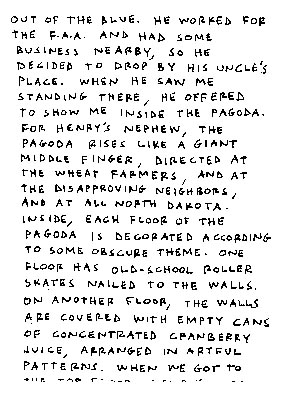 OUT OF THE BLUE. HE WORKED FOR
THE F.A.A. AND HAD SOME
BUSINESS NEARBY, SO HE
DECIDED TO DROP BY HIS UNCLE'S
PLACE. WHEN HE SAW ME
STANDING THERE, HE OFFERED
TO SHOW ME INSIDE THE PAGODA.
FOR HENRY'S NEPHEW, THE
PAGODA RISES LIKE A GIANT
MIDDLE FINGER, DIRECTED AT
THE WHEAT FARMERS, AND AT
THE DISAPPROVING NEIGHBORS,
AND AT ALL NORTH DAKOTA.
INSIDE, EACH FLOOR OF THE
PAGODA IS DECORATED ACCORDING
TO SOME OBSCURE THEME. ONE
FLOOR HAS OLD-SCHOOL ROLLER
SKATES NAILED TO THE WALLS.
ON ANOTHER FLOOR, THE WALLS
ARE COVERED WITH EMPTY CANS
OF CONCENTRATED CRANBERRY
JUICE, ARRANGED IN ARTFUL
PATTERNS. WHEN WE GOT TO
THE TOP FLOOR